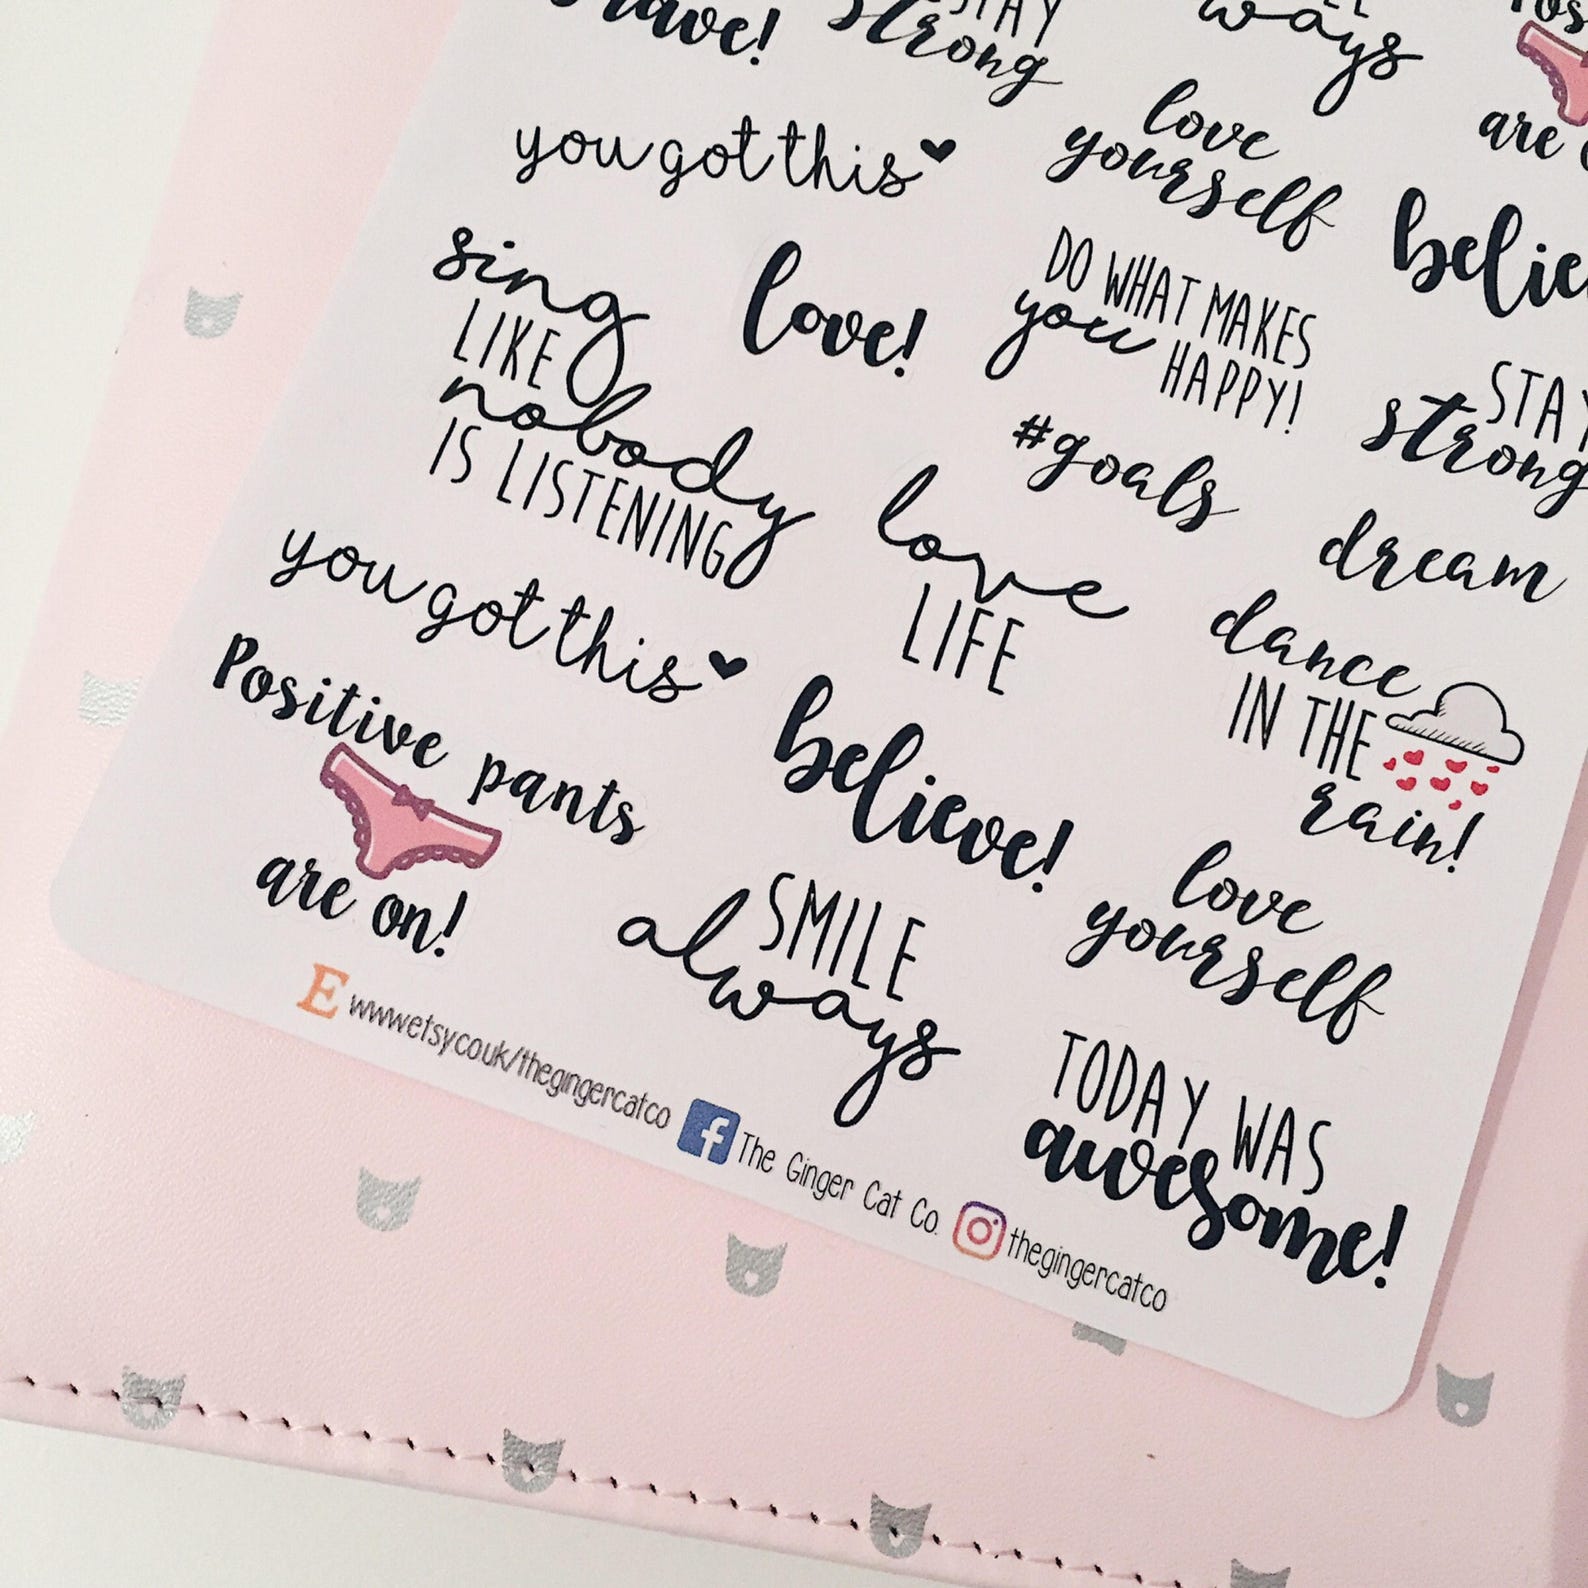 STAY
strong
ways
you got this
love
yourself
are
sing
LIKE
nobody
IS LISTENING
love!
DO WHAT MAKES
you HAPPY!
STAY
strong
#goals
love
LIFE
dream
you got this
dance
IN THE
rain!
Positive pants
are on!
believe!
love
yourself
SMILE
always
TODAY WAS
awesome!
E www.etsy.co.uk/thegingercatco f The Ginger Cat Co. thegingercatco